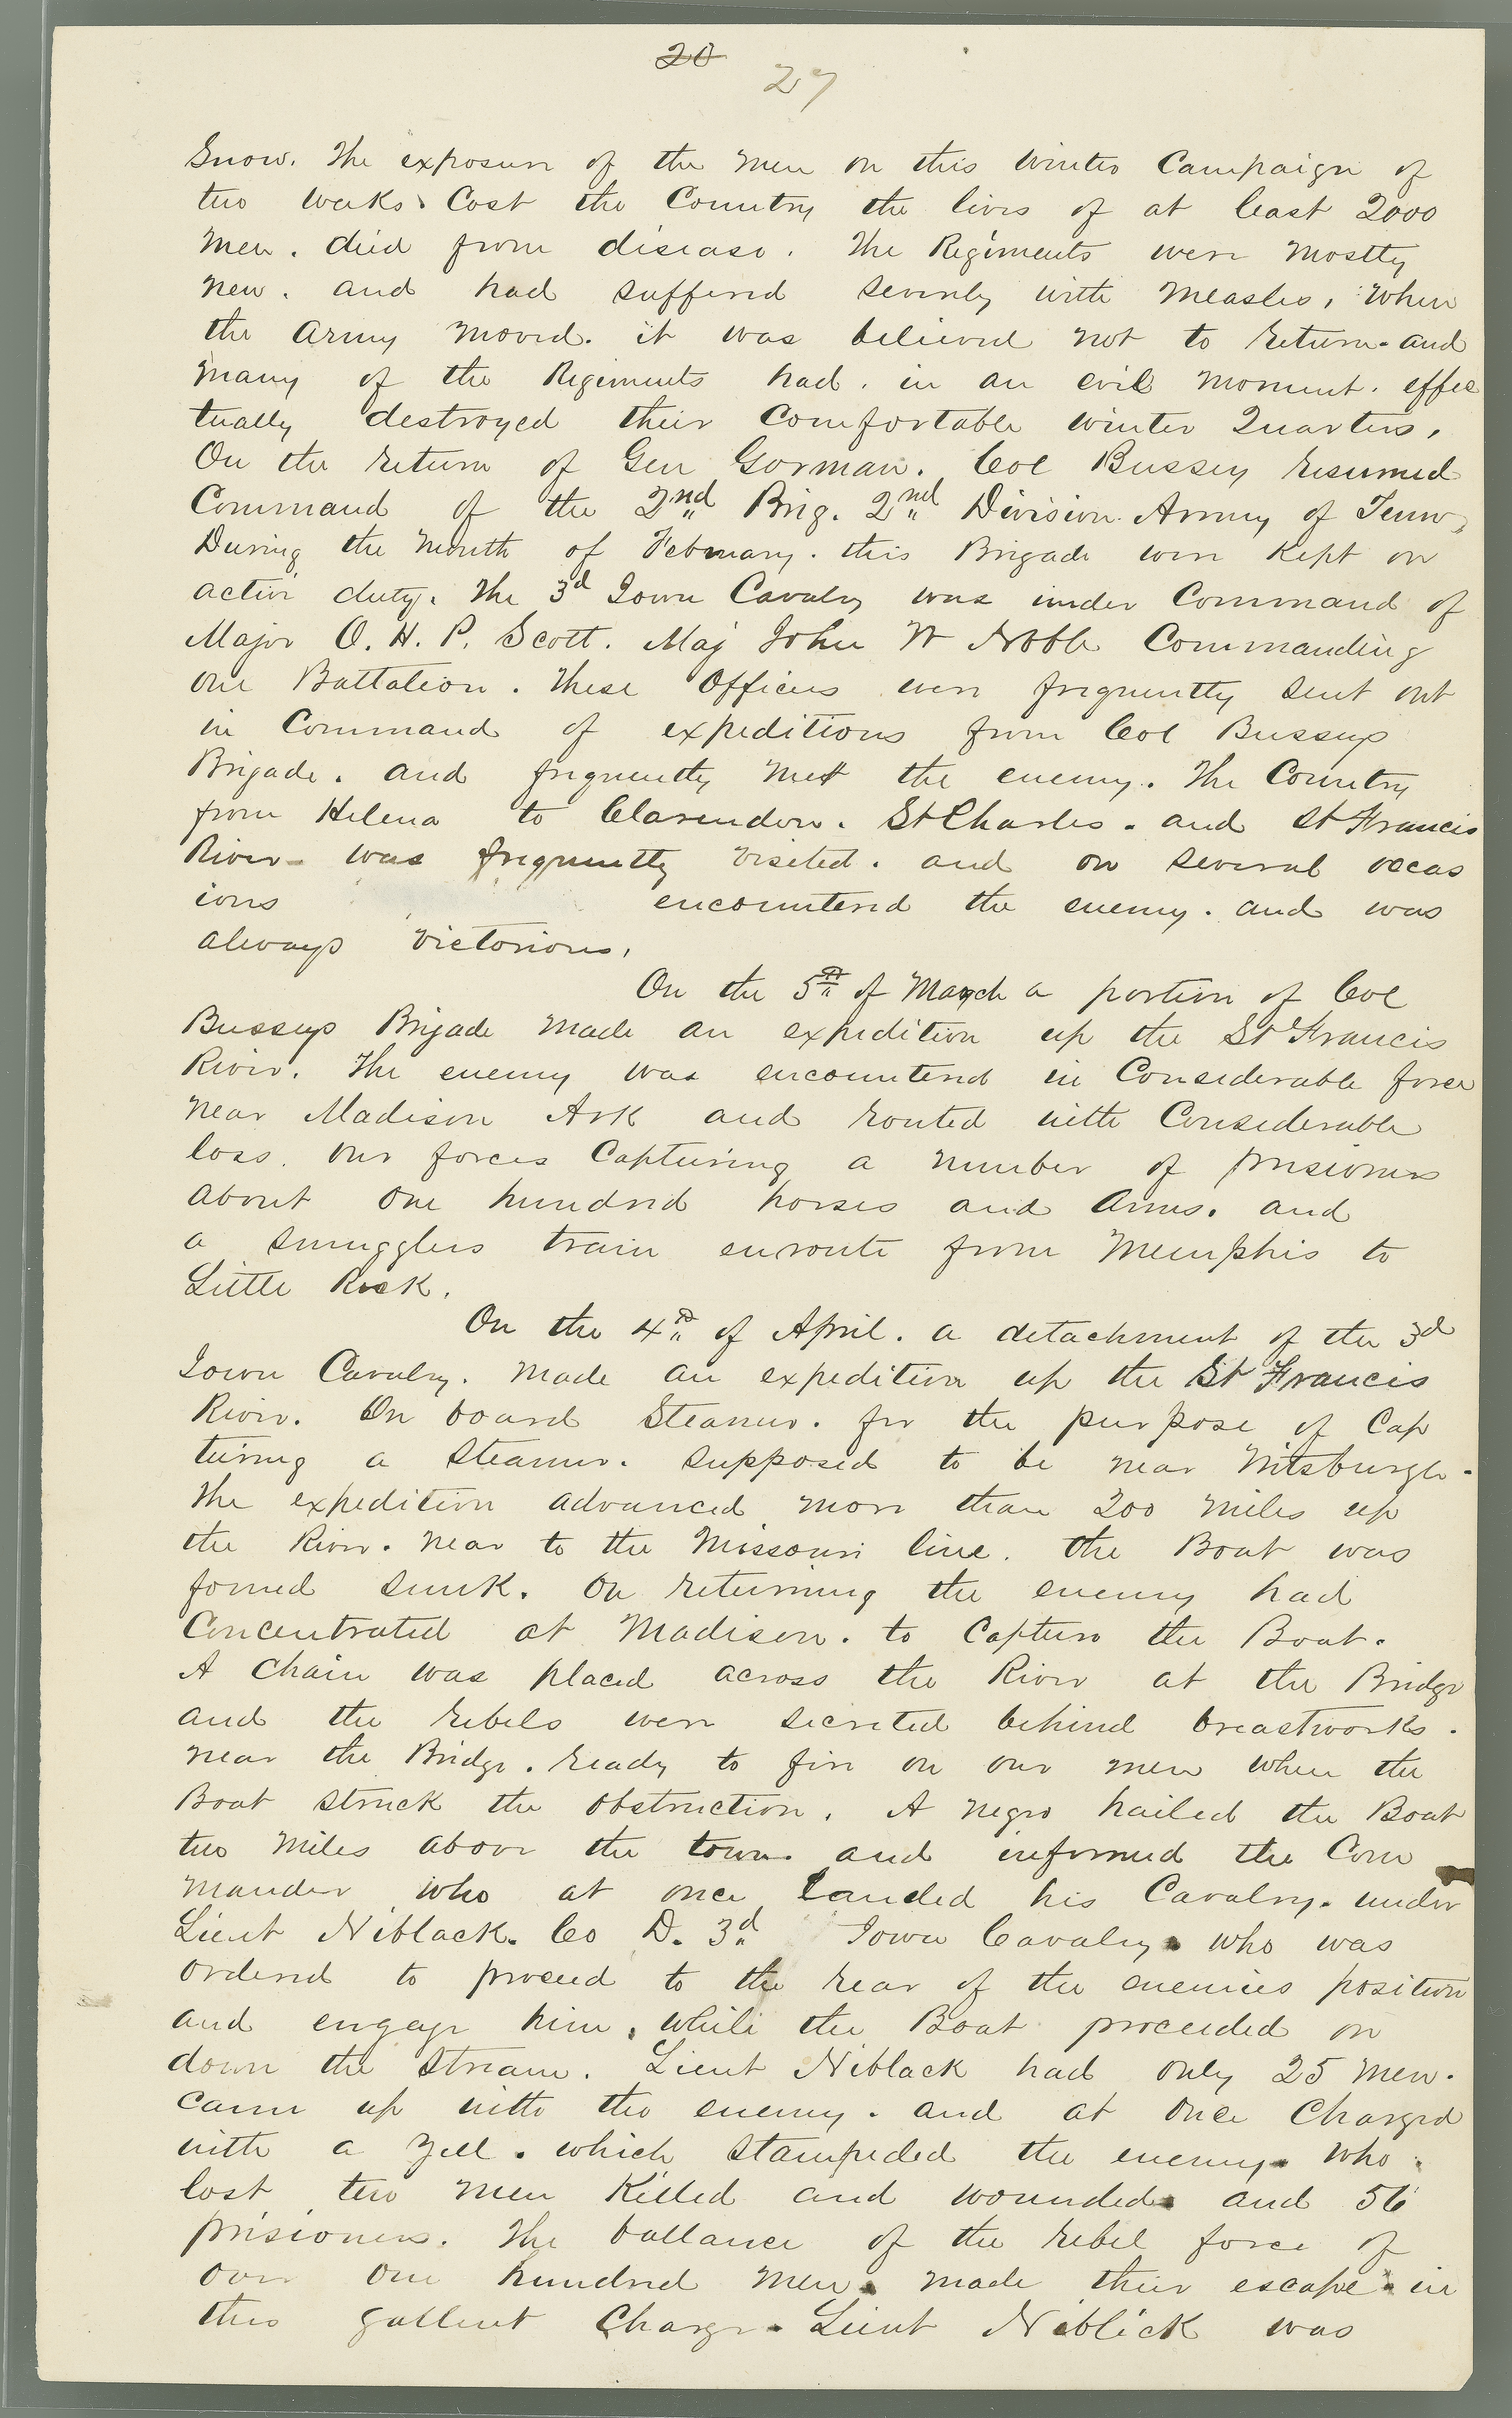 20
27
Snow. The exposure of the men on this winter Campaign of
two weeks. Cost the Country the lives of at least 2000
men. died from disease. The Regiments were mostly
new. and had suffered severely with measles, when
the army moved. it was believed not to return. and
many of the Regiments had. in an evil moment. effec
tually destroyed their Comfortable winter Quarters,
On the return of Gen Gorman. Col Bussey resumed
Command of the 2nd Brig. 2nd Division Army of Tenn,
During the month of February. this Brigade were kept on
active duty. The 3d Iowa Cavalry was under Command of
Major O. H. P. Scott. Maj John W Noble Commanding
one Battalion. These Officers were frequently sent out
in Command of expeditions from Col Busseys
Brigade. and frequently met the enemy. The Country
from Helena to Clarendon. St Charles. and St Francis
River was frequently visited. and on several occas
ions encountered the enemy. and was
always victorious,
On the 5th of March a portion of Col
Busseys Brigade made an expedition up the St Francis
River. The enemy was encountered in Considerable force
near Madison Ark and routed with Considerable
loss. our forces Capturing a number of prisioners
about one hundred horses and Arms. and
a smugglers train enroute from Memphis to
Little Rock.
On the 4th of April. a detachment of the 3d
Iowa Cavalry. made an expedition up the St Francis
River. On board Steamer. for the purpose of Cap
turing a steamer. supposed to be near Wittsburgh.
The expedition advanced more than 200 miles up
the River. near to the Missouri line. the Boat was
found sunk. On returning the enemy had
Concentrated at Madison. to Capture the Boat.
A chain was placed across the River at the Bridge
and the rebels were secreted behind breastworks.
near the Bridge. ready to fire on our men when the
Boat struck the obstruction. A negro hailed the Boat
two miles above the town. and informed the Com
mander who at once landed his Cavalry. under
Lieut Niblack. Co D. 3d Iowa Cavalry. who was
ordered to proceed to the rear of the enemies position
and engage him, while the Boat proceeded on
down the stream. Lieut Niblack had only 25 men.
came up with the enemy. and at once Charged
with a yell. which stampeded the enemy. who
lost two men killed and wounded. and 56
prisioners. The ballance of the rebel force of
over one hundred men. made their escape. in
this gallent Charge. Lieut Niblick was